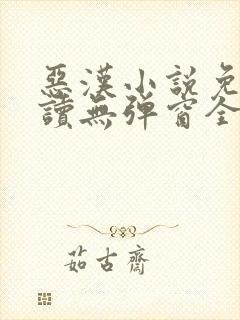 惡漢小說免
讀無彈窗全
茹古齋